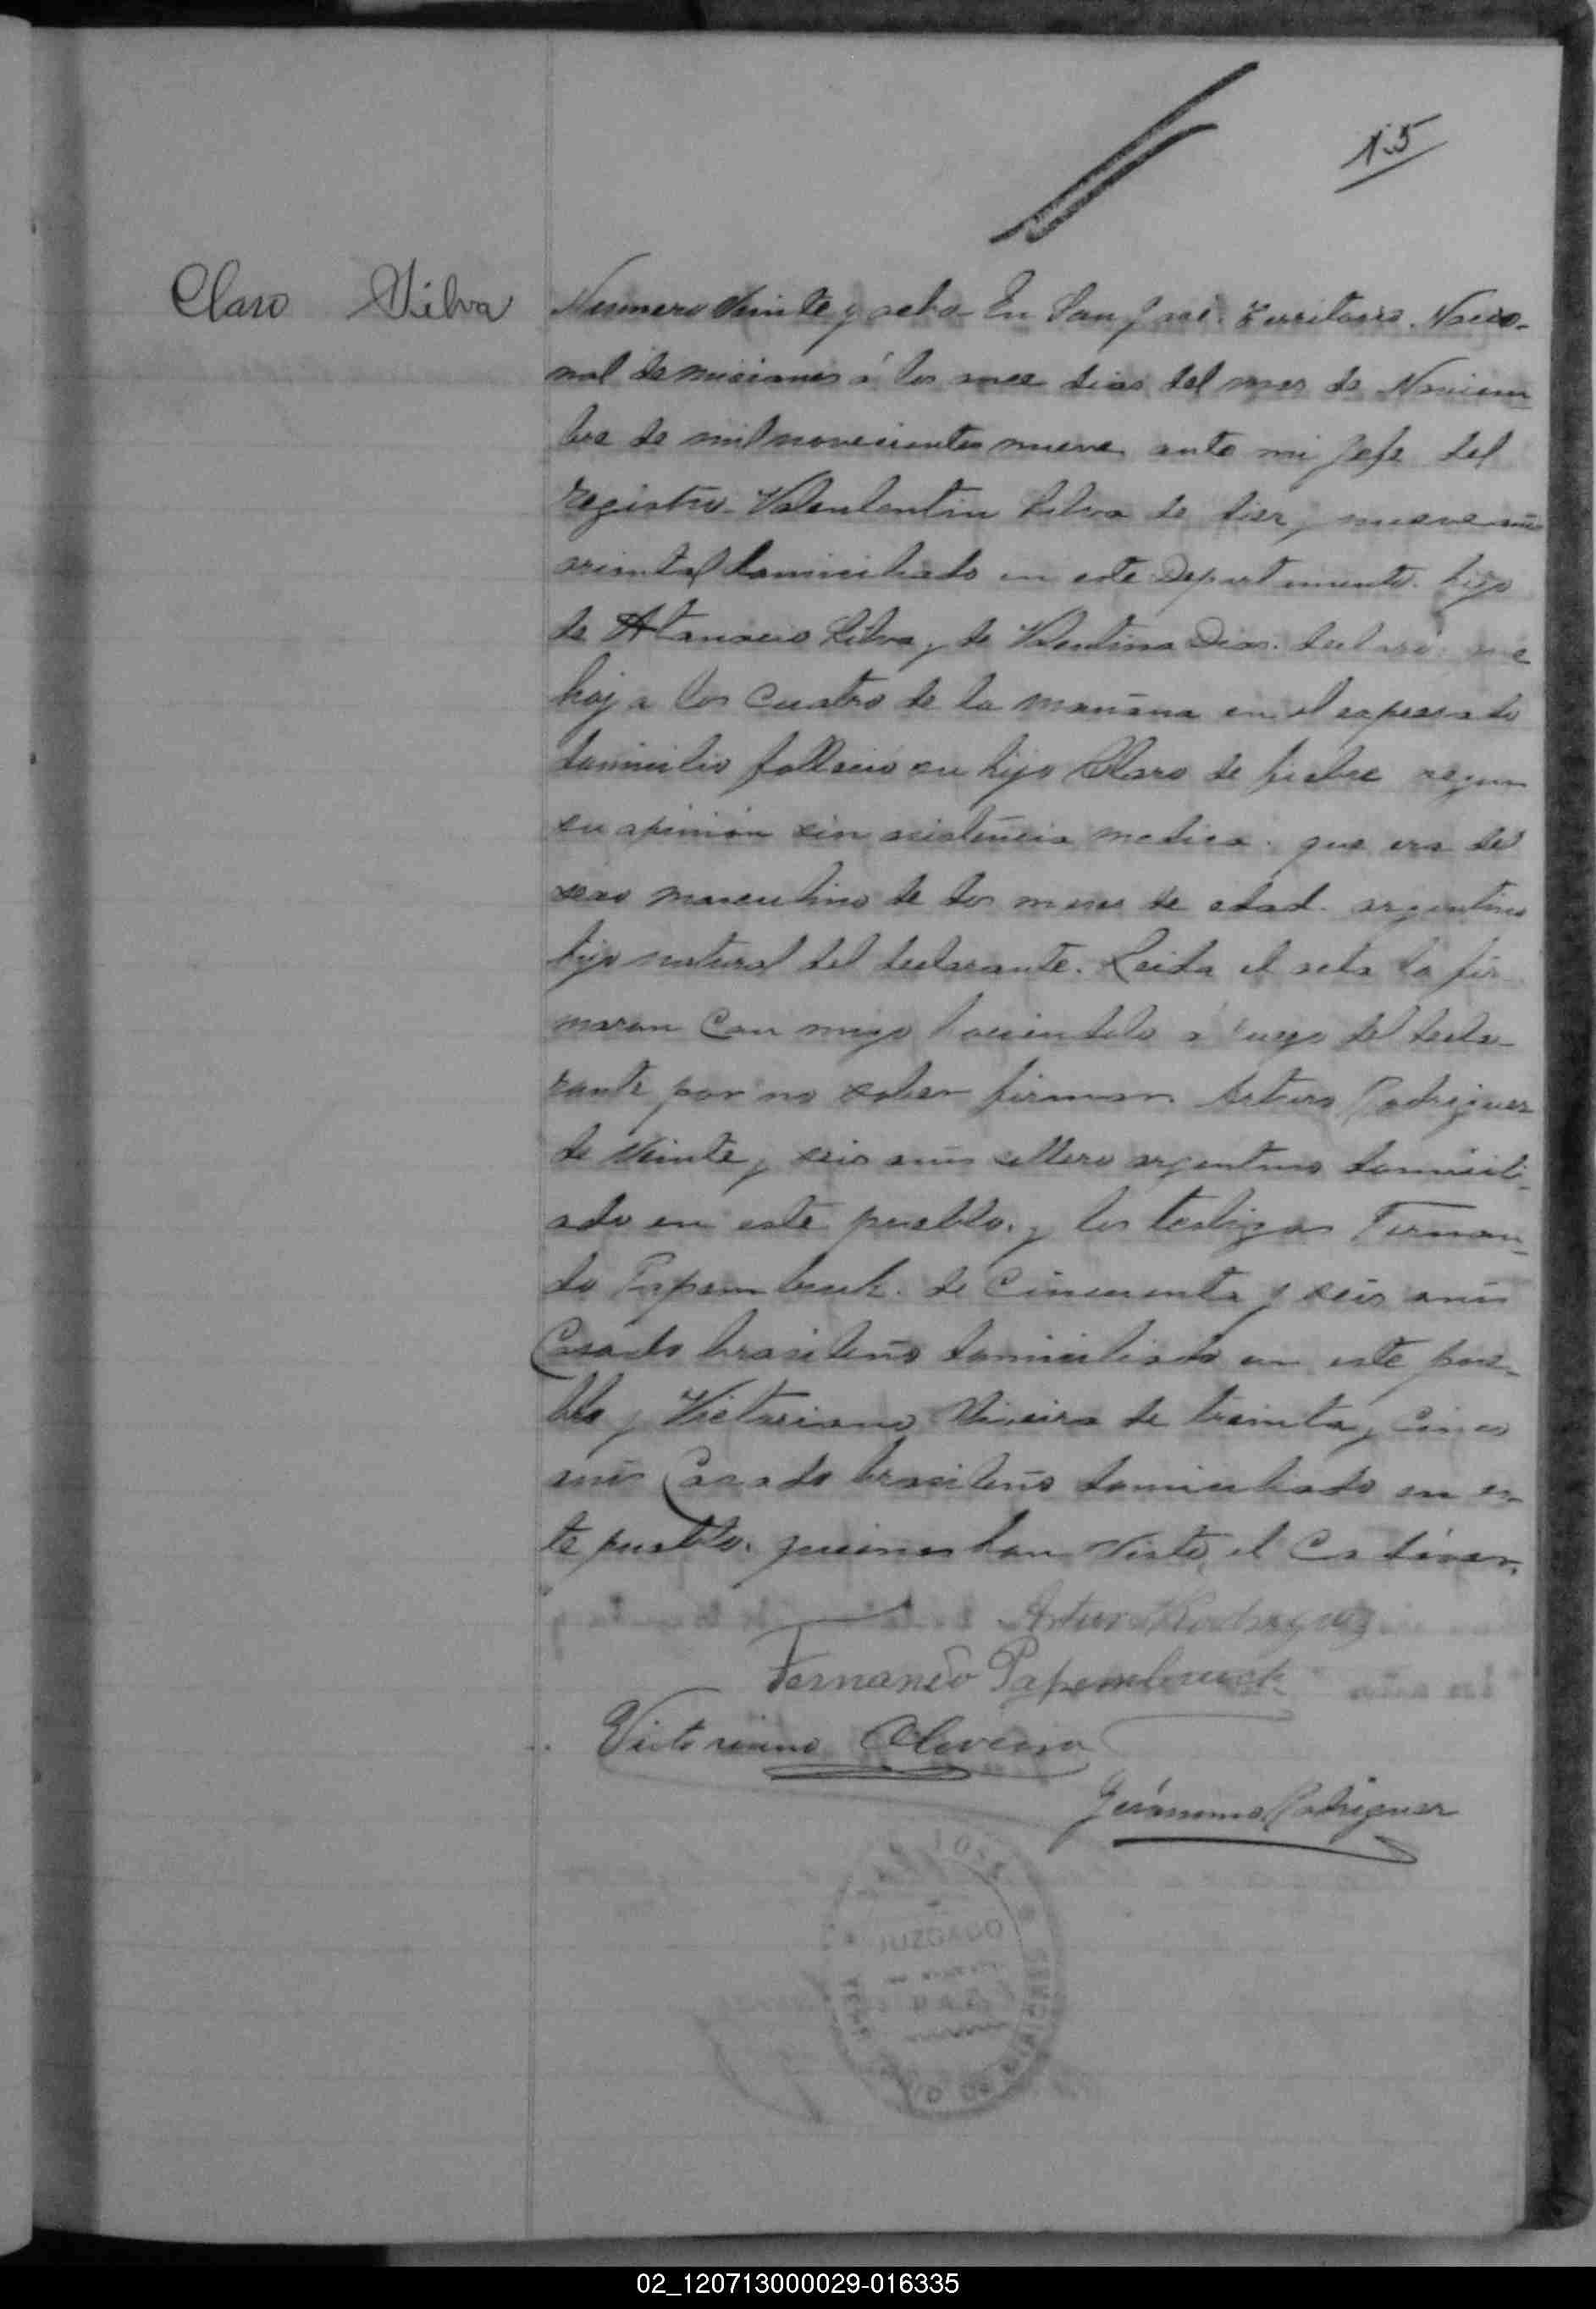 15
Claro Silva
Numero Veinte y ocho En San José. Territorio. Nacio-
nal de misiones á los once dias del mes de Noviem
bre de mil novecientos nueve ante mi Jefe del
registro. Valentin Silva de diez y nueve años
oriental domiciliado en este Departamento. hijo
de Atanacio Silva y de Valentina Dias. declaró que
hoy a las cuatro de la mañana en el expresado
domicilio fallecio su hijo Claro de fiebre segun
su opinión sin asistencia medica. que era del
sexo masculino de dos meses de edad. argentino
hijo natural del declarante. Leida el acta la fir
maron Con migo haciendolo á ruego del decla-
rante por no saber firmar. Arturo Rodriguez
de Veinte y seis años soltero argentino domicili-
ado en este pueblo. y los testigos Fernan-
do Papembruck. de Cincuenta y seis años
Casado brasileño domiciliado en este pue-
blo y Victoriano de treinta y cinco
años Casado brasileño domiciliado en es-
te pueblo. quienes han Visto el Cadáver.
Arturo Rodriguez
Fernando Papembruck
Victoriano Oliveira
Gerónimo Rodriguez
JUZGADO
02_120713000029-016335